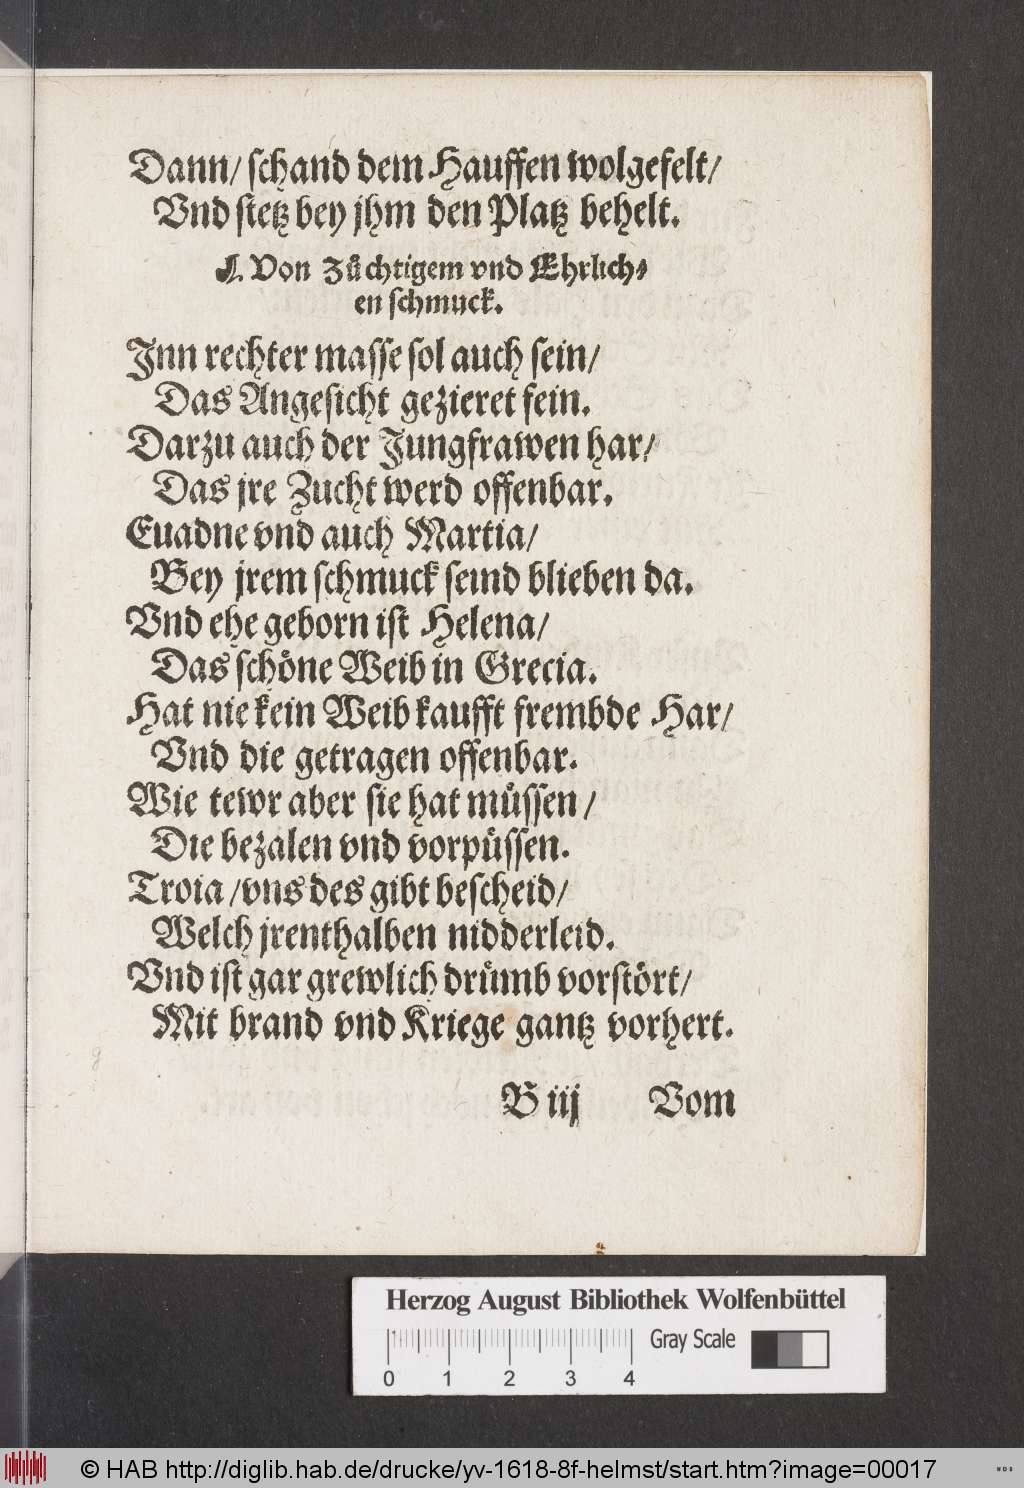 Dann/ schand dem Hauffen wolgefelt/
Vnd stetz bey jhm den Platz behelt.
¶. Von Zůchtigem vnd Ehrlich⸗
en schmuck.
Jnn rechter masse sol auch sein/
Das Angesicht gezieret fein.
Darzu auch der Jungfrawen har/
Das jre Zucht werd offenbar.
Euadne vnd auch Martia/
Bey jrem schmuck seind blieben da.
Vnd ehe geborn ist Helena/
Das schöne Weib in Grecia.
Hat nie kein Weib kaufft frembde Har/
Vnd die getragen offenbar.
Wie tewr aber sie hat müssen/
Die bezalen vnd vorpüssen.
Troia/ vns des gibt bescheid/
Welch jrenthalben nidderleid.
Vnd ist gar grewlich drümb vorstört/
Mit brand vnd Kriege gantz vorhert.
B iij Vom
Herzog August Bibliothek Wolfenbüttel
Gray Scale
0 1 2 3 4
© HAB http://diglib.hab.de/drucke/yv-1618-8f-helmst/start.htm?image=00017